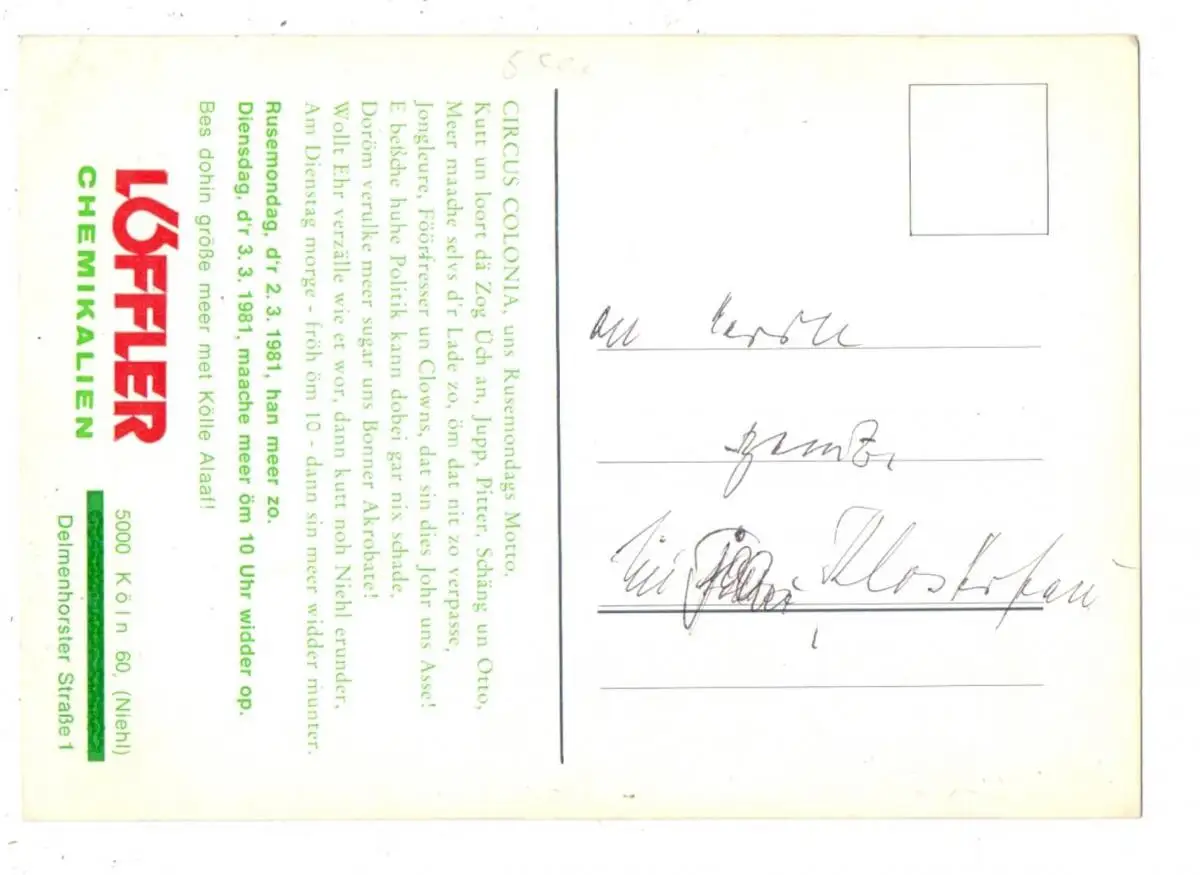 CIRCUS COLONIA, uns Rusemondags Motto,
Kutt un loort dä Zog Üch an, Jupp, Pitter, Schäng un Otto,
Meer maache selvs d'r Lade zo, öm dat nit zo verpasse,
Jongleure, Föörfresser un Clowns, dat sin dies Johr uns Asse!
E beßche huhe Politik kann dobei gar nix schade,
Doröm verulke meer sugar uns Bonner Akrobate!
Wollt Ehr verzälle wie et wor, dann kutt noh Niehl erunder,
Am Dienstag morge - fröh öm 10 - dann sin meer widder munter.
Rusemondag, d'r 2. 3. 1981, han meer zo.
Diensdag, d'r 3. 3. 1981, maache meer öm 10 Uhr widder op.
Bes dohin größe meer met Kölle Alaaf!
LÖFFLER
CHEMIKALIEN
5000 Köln 60, (Niehl)
Delmenhorster Straße 1